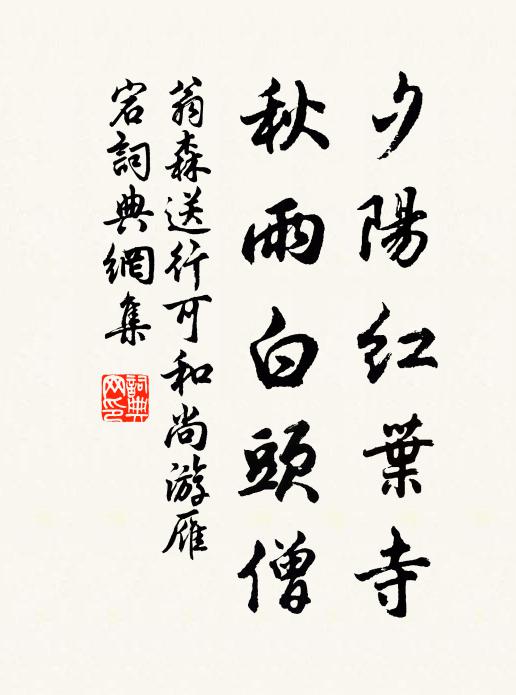 夕陽紅葉寺
秋雨白頭僧
翁森送行可和尚游雁
宕詞典網集
詞典网印